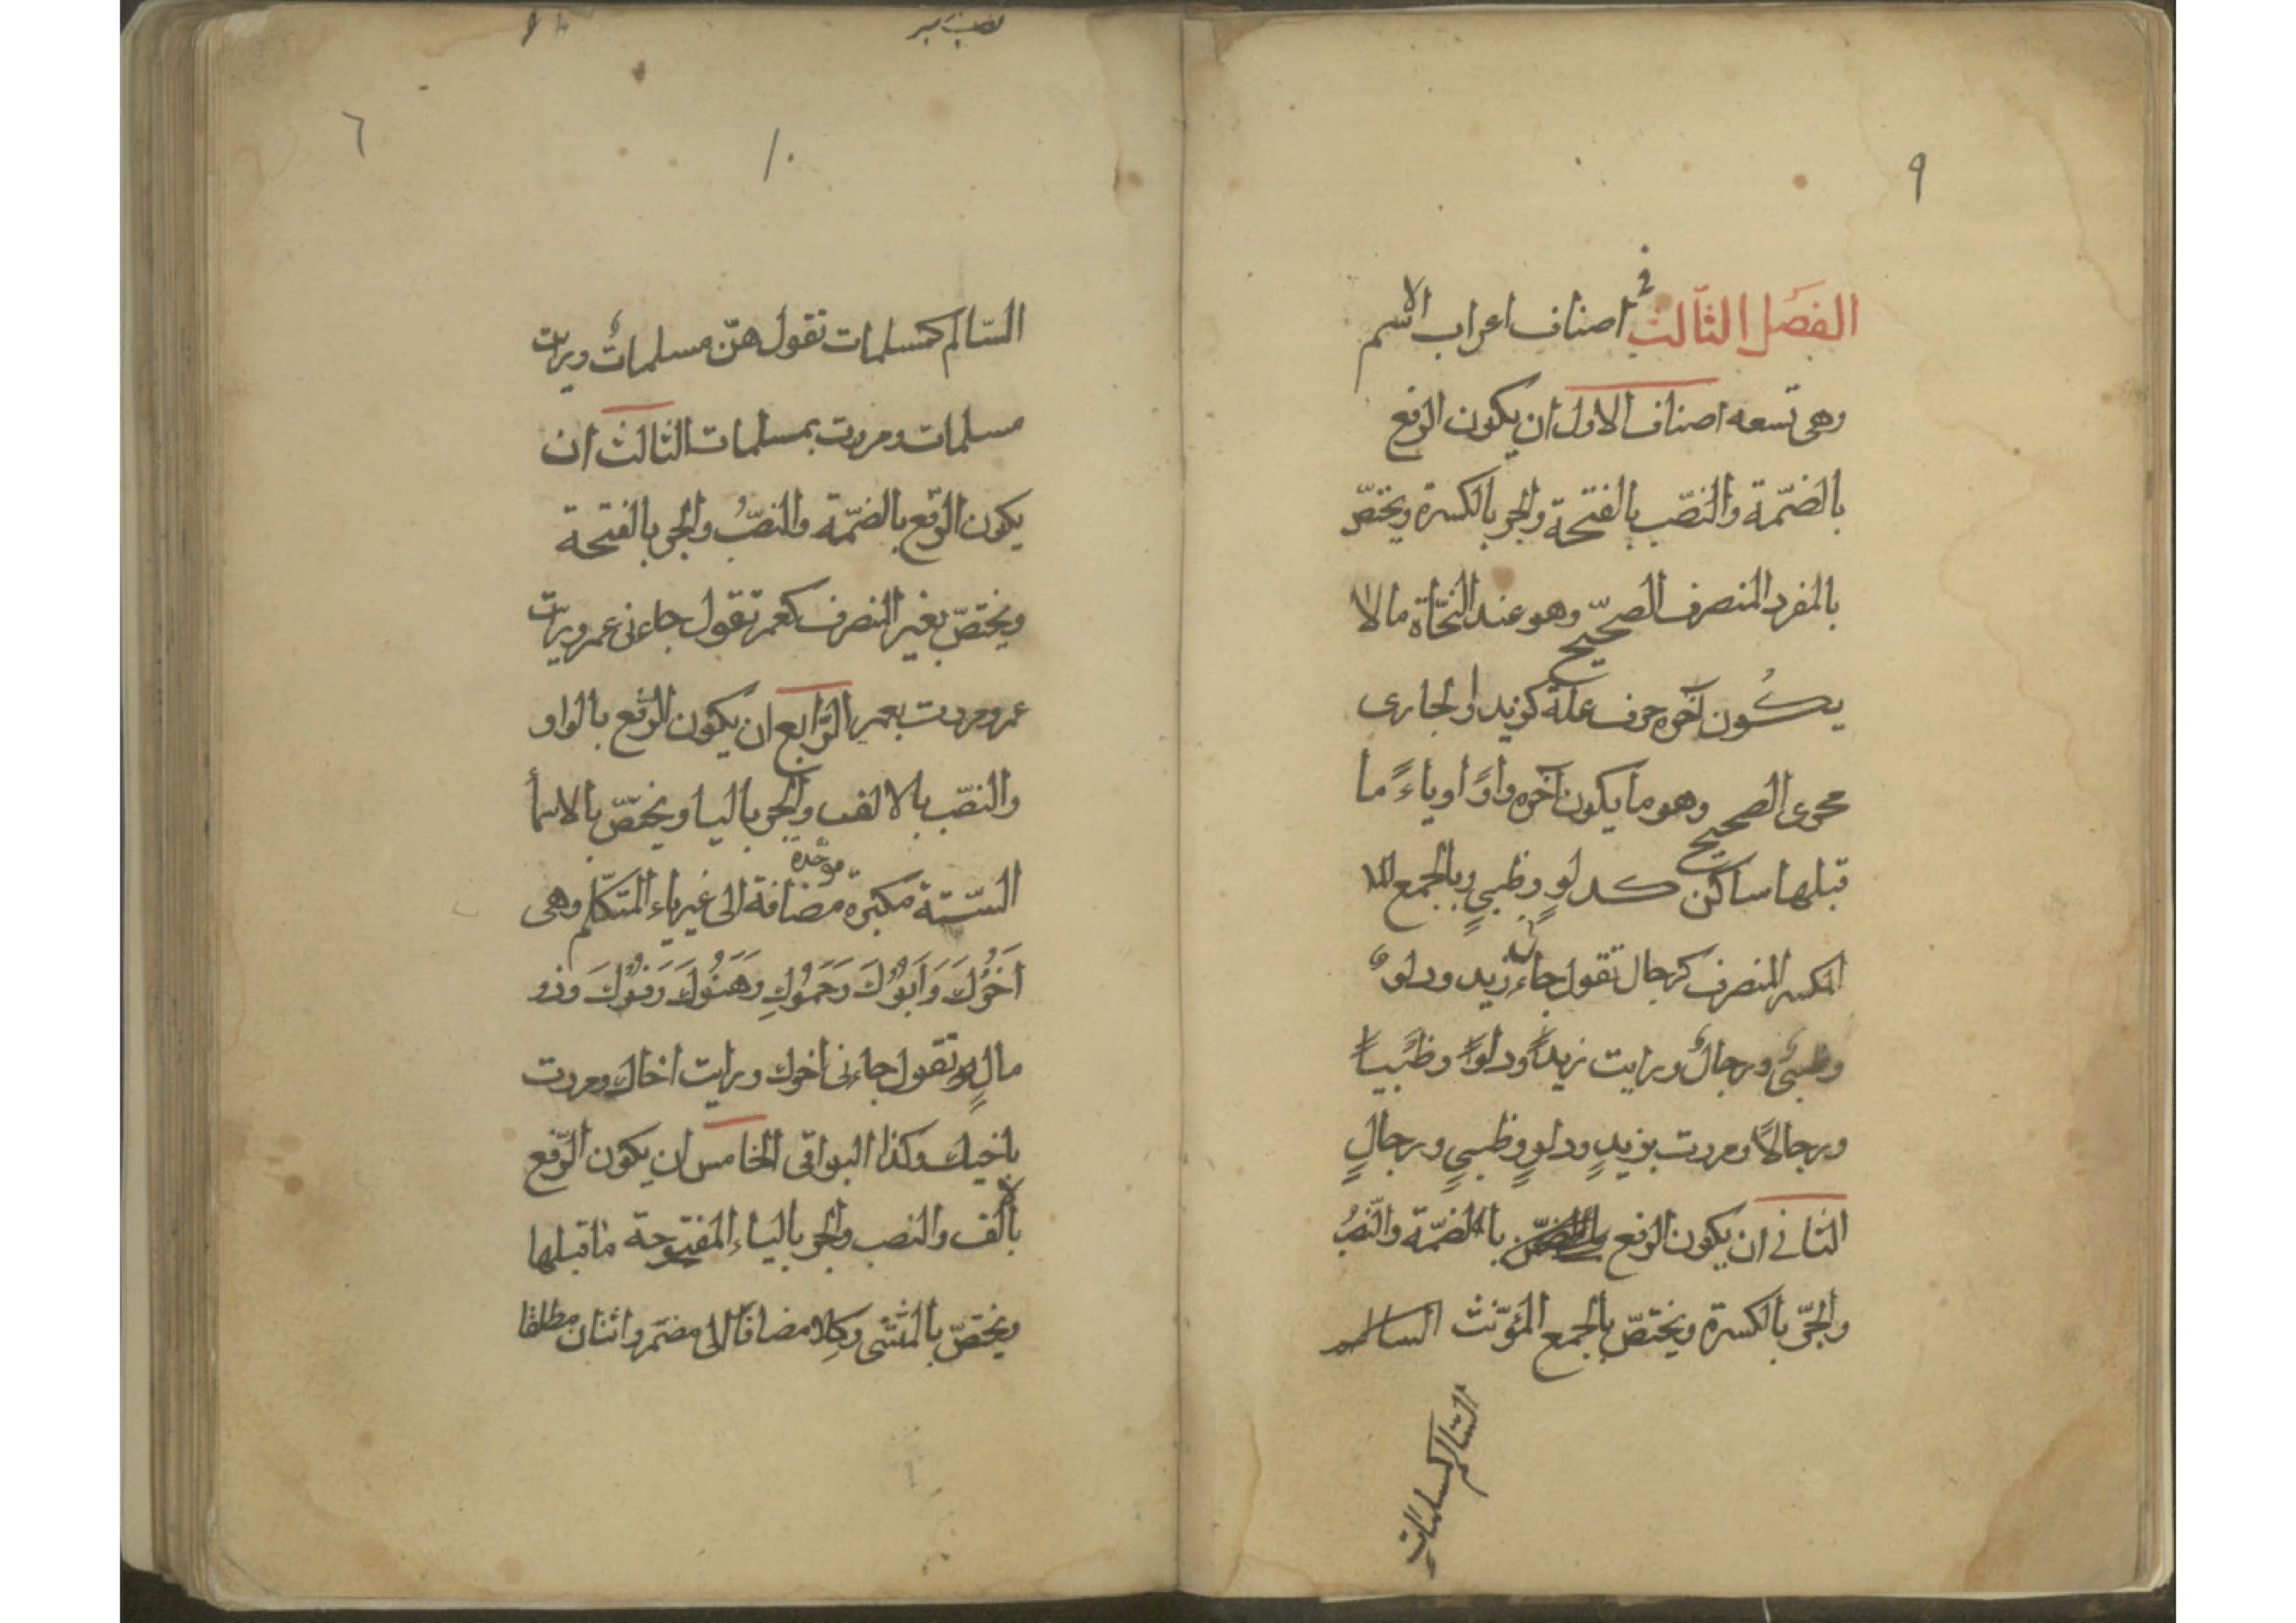 ٩
الفصل الثالث في اصناف اعراب الاسم
وهى تسعه اصناف الاول ان يكون الرفع
بالضّمة والنصّب بالفتحة والجر بالكسرة ويختصّ
بالمفرد المنصرف الصحيح وهو عند النحّاة ما لا
يكون آخره حرف علة كزيد او الجارى
مجرى الصحيح وهو ما يكون آخره واوًا او ياءً ما
قبلها ساكن كدلوٍ وظبيٍ وبالجمع
المكسر المنصرف كرجال تقول جاءنى زيد ودلوٌ
وظبىٌ ورجالٌ ورايت زيداً ودلوًا وظبيًا
ورجالاً ومررت بزيدٍ ودلوٍ وظبيٍ ورجالٍ
الثانى ان يكون الرفع بالضمّة والنّصبُ
والجرّ بالكسرة ويختصّ بالجمع المؤنّث السالم
السّالم كمسلمات
١٠
٦
السّالم كمسلمات تقول هنّ مسلماتٌ ورايت
مسلمات ومررت بمسلمات الثالث ان
يكون الرّفع بالضمّة والنصّبُ والجر بالفتحة
ويختصّ بغير المنصرف كعمر تقول جاءنى عمر ورايت
عمر ومررت بعمر الرّابع ان يكون الرّفع بالواو
والنصّب بالالف والجر باليا ويختصّ بالاسمأ
السّتة مكبرة موحّدة مضافة الى غير ياء المتكلّم وهى
اَخُوْكَ وَاَبُوْكَ وَحَمُوْكِ وَهَنُوْكَ وَفُوْكَ وَذو
مالٍ تقول جاءنى اخوك ورايت اخاك ومررت
باخيك وكذا البواقى الخامس ان يكون الرّفع
بالالف والنصب والجر بالياء المفتوحة ما قبلها
ويختصّ بالمثنّى وكِلا مضافًا الى مضمر واثنان مطلقا